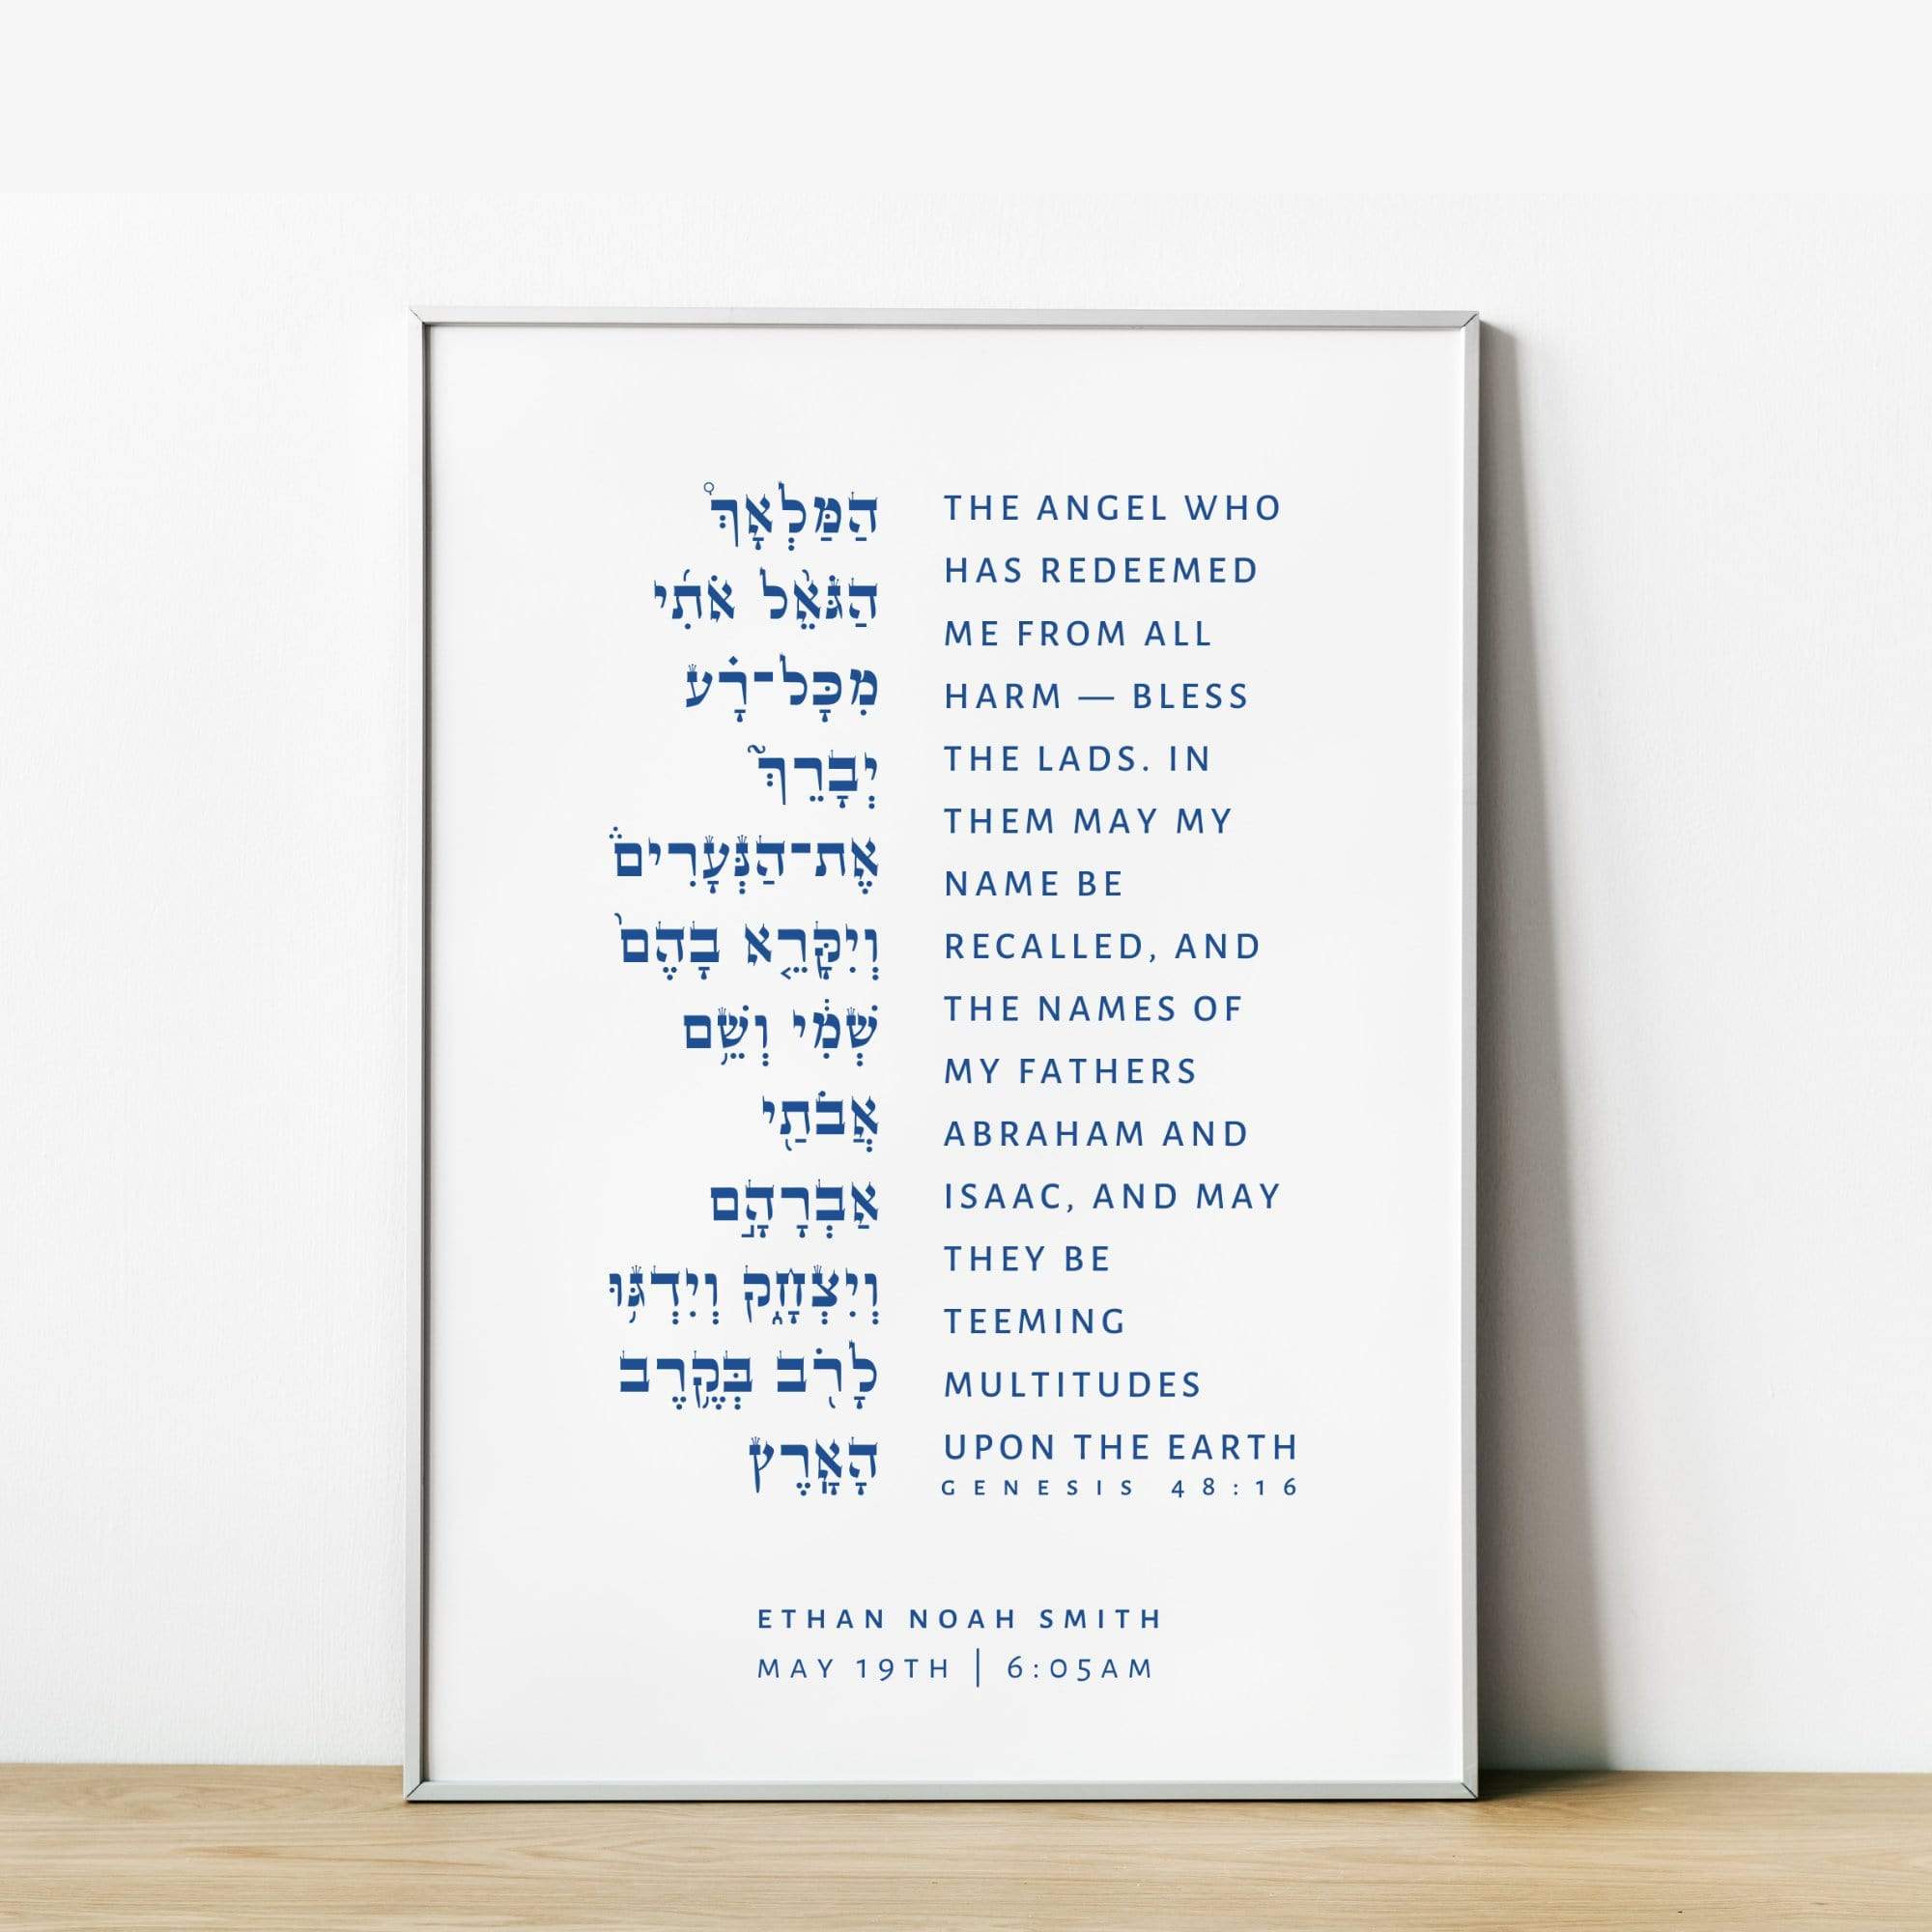 הַמַּלְאָךְ֩
הַגֹּאֵ֨ל אֹתִ֜י
מִכָּל־רָ֗ע
יְבָרֵךְ֮
אֶת־הַנְּעָרִים֒
וְיִקָּרֵ֤א בָהֶם֙
שְׁמִ֔י וְשֵׁ֥ם
אֲבֹתַ֖י
אַבְרָהָ֣ם
וְיִצְחָ֑ק וְיִדְגּ֥וּ
לָרֹ֖ב בְּקֶ֥רֶב
הָאָֽרֶץ
THE ANGEL WHO
HAS REDEEMED
ME FROM ALL
HARM — BLESS
THE LADS. IN
THEM MAY MY
NAME BE
RECALLED, AND
THE NAMES OF
MY FATHERS
ABRAHAM AND
ISAAC, AND MAY
THEY BE
TEEMING
MULTITUDES
UPON THE EARTH
GENESIS 48:16
ETHAN NOAH SMITH
MAY 19TH | 6:05AM